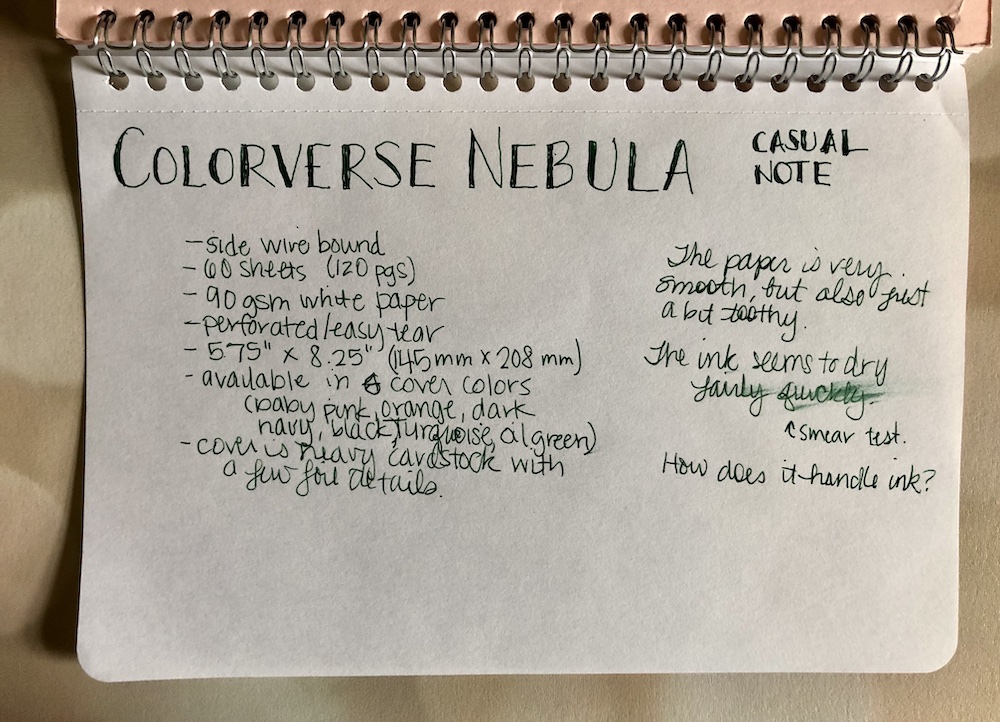 COLORVERSE NEBULA
CASUAL
NOTE
- side wire bound
- 60 sheets (120 pgs)
- 90 gsm white paper
- perforated/easy tear
- 5.75" x 8.25" (145 mm x 208 mm)
- available in 6 cover colors
(baby pink, orange, dark
navy, black, turquoise, oil green)
- cover is heavy cardstock with
a few foil details.
The paper is very
smooth, but also just
a bit toothy.
The ink seems to dry
fairly quickly.
↑ smear test.
How does it handle ink?